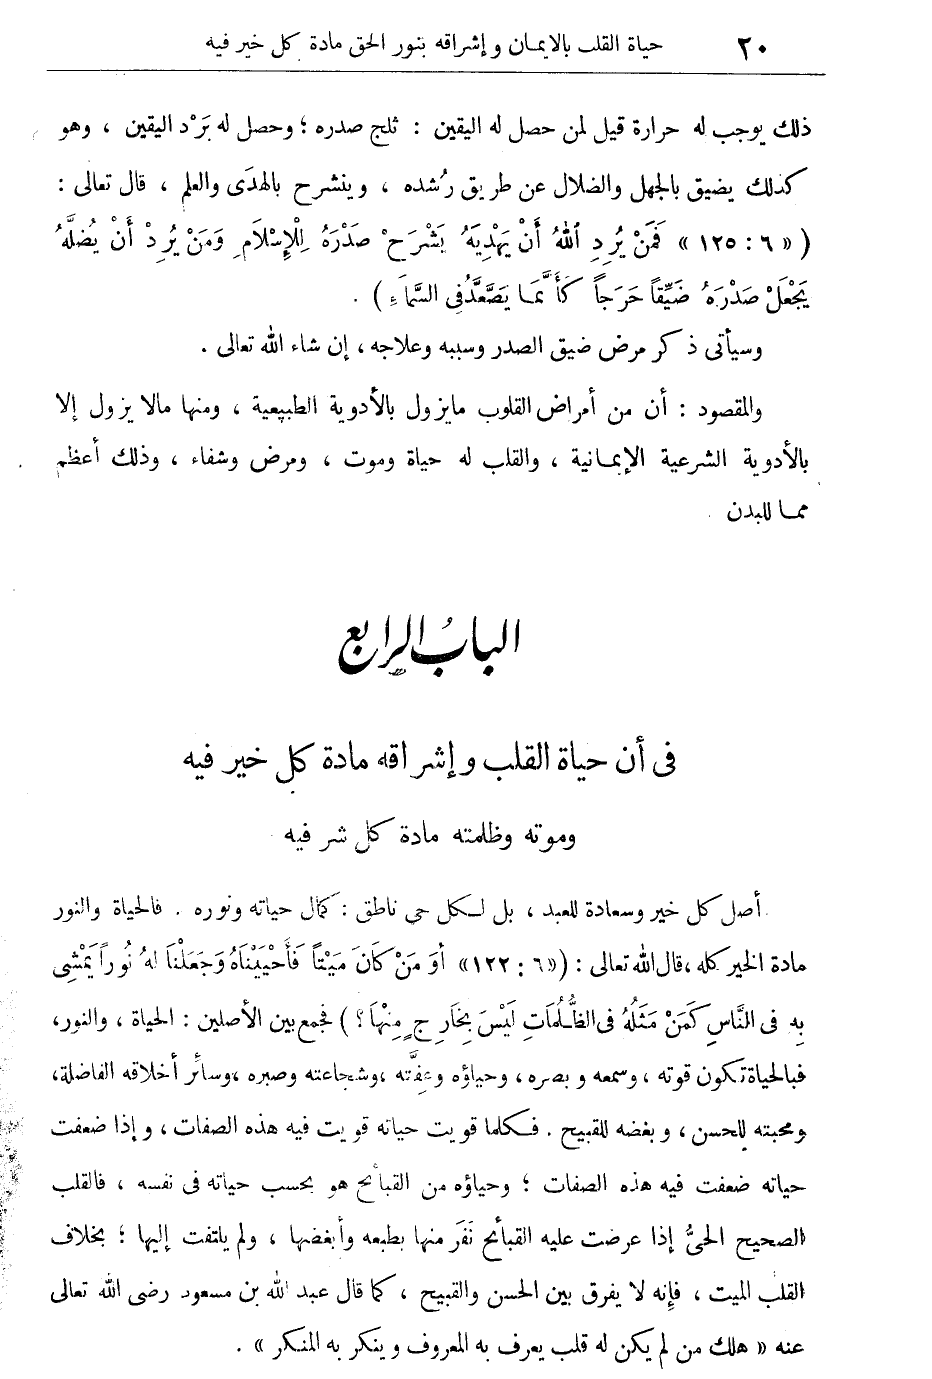 ٢٠ حياة القلب بالايمان وإشراقه بنور الحق مادة كل خير فيه
ذلك يوجب له حرارة قيل لمن حصل له اليقين : ثلج صدره ؛ وحصل له بَرْد اليقين ، وهو
كذلك يضيق بالجهل والضلال عن طريق رُشده ، وينشرح بالهدَى والعلم ، قال تعالى :
( « ٦ : ١٢٥ » فَمَنْ يُرِدِ ٱللهُ أَنْ يَهْدِيَهُ يَشْرَحْ صَدْرَهُ لِلْإِسْلَامِ وَمَنْ يُرِدْ أَنْ يُضلَّهُ
يَجْعَلْ صَدْرَهُ ضَيِّقاً حَرَجاً كَأَنَّمَا يَصَّعَّدُ فِى السَّمَاءِ ) .
وسيأتى ذكر مرض ضيق الصدر وسببه وعلاجه ، إن شاء الله تعالى .
والمقصود : أن من أمراض القلوب مايزول بالأدوية الطبيعية ، ومنها مالا يزول إلا
بالأدوية الشرعية الإيمانية ، والقلب له حياة وموت ، ومرض وشفاء ، وذلك أعظم
مما للبدن .
البابُ الرابع
فى أن حياة القلب وإشراقه مادة كل خير فيه
وموته وظلمته مادة كل شر فيه
أصل كل خير وسعادة للعبد ، بل لكل حي ناطق : كمال حياته ونوره . فالحياة والنور
مادة الخير كله ، قال الله تعالى : ( « ٦ : ١٢٢ » أوَ مَنْ كَانَ مَيْتاً فَأَحْيَيْنَاهُ وَجَعَلْنَا لهُ نُوراً يَمْشِى
بِهِ فى النَّاسِ كَمَنْ مَثَلُهُ فى الظُّلُمَاتِ لَيْسَ بِخَارِجٍ مِنْهَا ؟ ) فجمع بين الأصلين : الحياة ، والنور،
فبالحياة تكون قوته ، وسمعه وبصره ، وحياؤه وعِفَّته ، وشجاعته وصبره ، وسائر أخلاقه الفاضلة،
ومحبته للحسن ، وبغضه للقبيح . فكلما قويت حياته قويت فيه هذه الصفات ، وإذا ضعفت
حياته ضعفت فيه هذه الصفات ؛ وحياؤه من القبائح هو بحسب حياته فى نفسه ، فالقلب
الصحيح الحىُّ إذا عرضت عليه القبائح نَفَر منها بطبعه وأبغضها ، ولم يلتفت إليها ؛ بخلاف
القلب الميت ، فإنه لا يفرق بين الحسن والقبيح ، كما قال عبد الله بن مسعود رضى الله تعالى
عنه « هلك من لم يكن له قلب يعرف به المعروف وينكر به المنكر » .